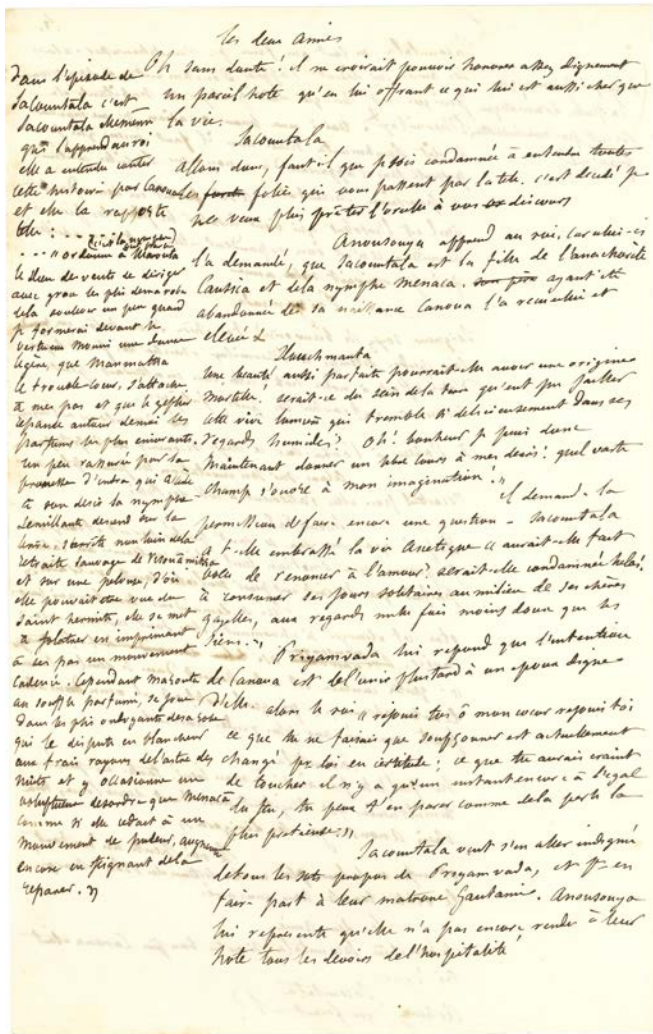 les deux amies
Oh sans doute! il ne croirait pouvoir honorer assez dignement
un pareil hôte qu'en lui offrant ce qui lui est aussi cher que
la vie.
Sacountala
Allons donc, faut il que je sois condamnée à entendre toutes
les folies qui vous passent par la tête. c'est décidé je
ne veux plus prêter l'oreille à vos discours
Anousouya apprend au roi, car celui-ci
l'a demandé, que Sacountala est la fille de l'anachorète
Causica et de la nymphe Menaca. ayant été
abandonnée dès sa naissance Canoua l'a recueillie et
elevée &
Douchmanta
Une beauté aussi parfaite pourrait-elle avoir une origine
mortelle! serait-ce du sein de la terre qu'eut pu jaillir
cette vive lumière qui tremble si délicieusement dans ses
regards humides? Oh! bonheur je puis donc
maintenant donner un libre cours à mes desirs! quel vaste
champ s'ouvre à mon imagination! "
il demande la
permission de faire encore une question - Sacountala
a t-elle embrassé la vie ascetique aurait-elle fait
voeu de renoncer à l'amour? serait-elle condamnée helas!
à consumer ses jours solitaires au milieu de ses chères
gazelles, aux regards mille fois moins doux que les
siens. "
Priyamvada lui repond que l'intention
de Canoua est de l'unir plus tard à un epoux digne
d'elle. alors le roi " réjouis toi ô mon coeur rejouis toi
ce que tu ne faisais que soupçonner est actuellement
changé pr toi en certitude; ce que tu aurais craint
de toucher il n'y a qu'un instant encore à l'egal
du feu, tu peux t'en parer comme de la perle la
plus pretieuse. "
Sacountala veut s'en aller indignée
de tous les sots propos de Priyamvada, et en
faire part à leur matrone Gautami. Anousouya
lui represente qu'elle n'a pas encore rendu à leur
hôte tous les devoirs de l'hospitalité
Dans l'épisode de
Sacountala c'est
Sacountala elle même
qui l'apprend au roi
elle a entendu conter
cette histoire par Canoua
et elle la rapporte
telle : - - - -
(c'est la nymphe qui parle)
.... " ordonne à Marouta
le dieu des vents de diriger
avec grace les plis
de la souleur un peu quand
je formerai devant le
vertueux Mouni une danse
légère, que Manmatha
le trouble-coeur, s'attache
à mes pas et que le zephir
repande autour de moi les
parfums les plus enivrants.
un peu rassurée par la
promesse d'Indra qui
à son desir la nymphe
semillante descend sur la
terre, s'arrête non loin de la
retraite sauvage de Visouamitra
et sur une pelouse, d'où
elle pouvait etre vue du
saint hermite, elle se met
à folatrer en imprimant
à ses pas un mouvement
cadencé. Cependant Marouta
au souffle parfumé, se joue
dans les plis ondoyants de sa robe
qui le dispute en blancheur
aux frais rayons de l'astre des
nuits et y occasionne un
voluptueux desordre que Menaca
comme si elle cedait à un
mouvement de pudeur, augmente
encore en feignant de la
reparer. "